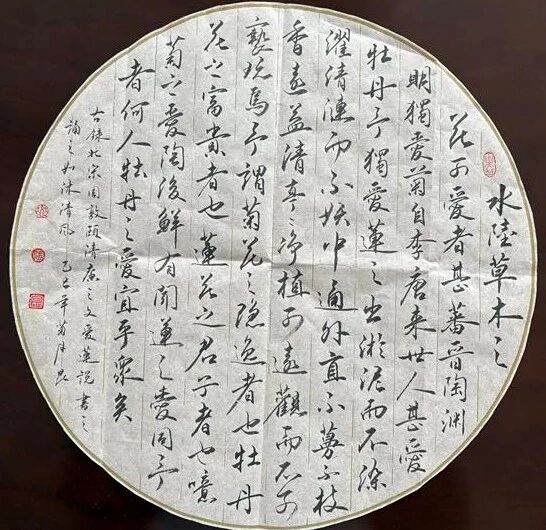 水陸草木之
花可愛者甚蕃晉陶渊
明獨愛菊自李唐来世人甚愛
牡丹予獨愛蓮之出淤泥而不染
濯清漣而不妖中通外直不蔓不枝
香遠益清亭々净植可遠觀而不可
褻玩焉予謂菊花之隐逸者也牡丹
花之富貴者也蓮花之君子者也噫
菊之愛陶後鮮有聞蓮之愛同予
者何人牡丹之愛宜乎衆矣
右録北宋周敦頤清廉之文愛蓮説書之
誦之如沐清風 乙巳年 月